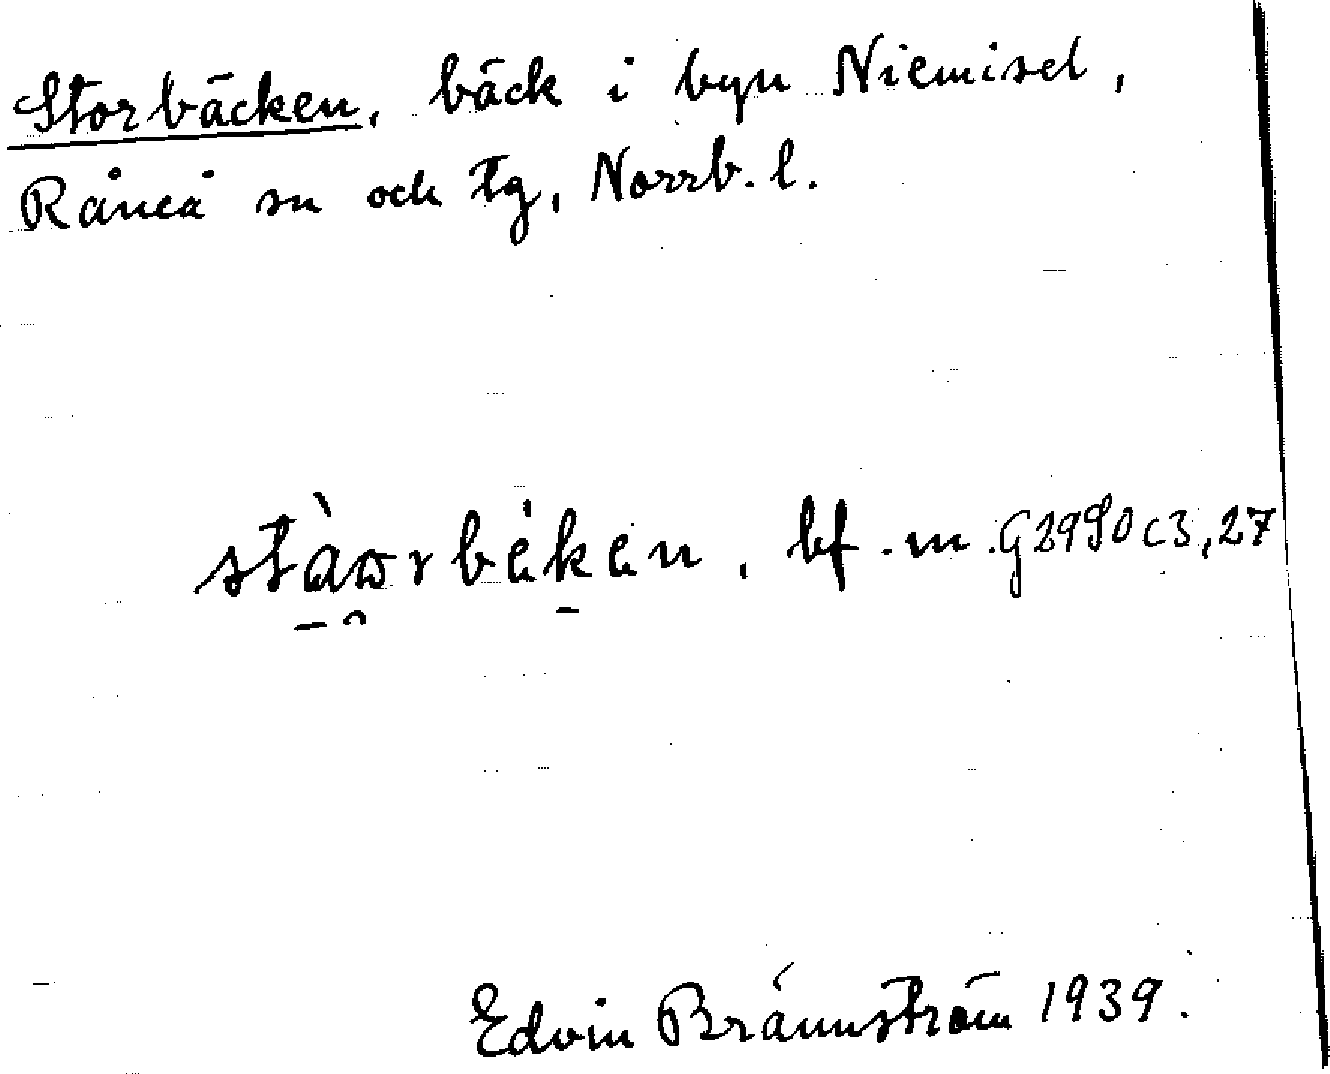 Storbäcken, bäck i byn Niemisel,
Råneå sn och tg, Norrb. l.
stàωrbèken, bf. m. G2990 c3, 27
Edvin Brännström 1939.